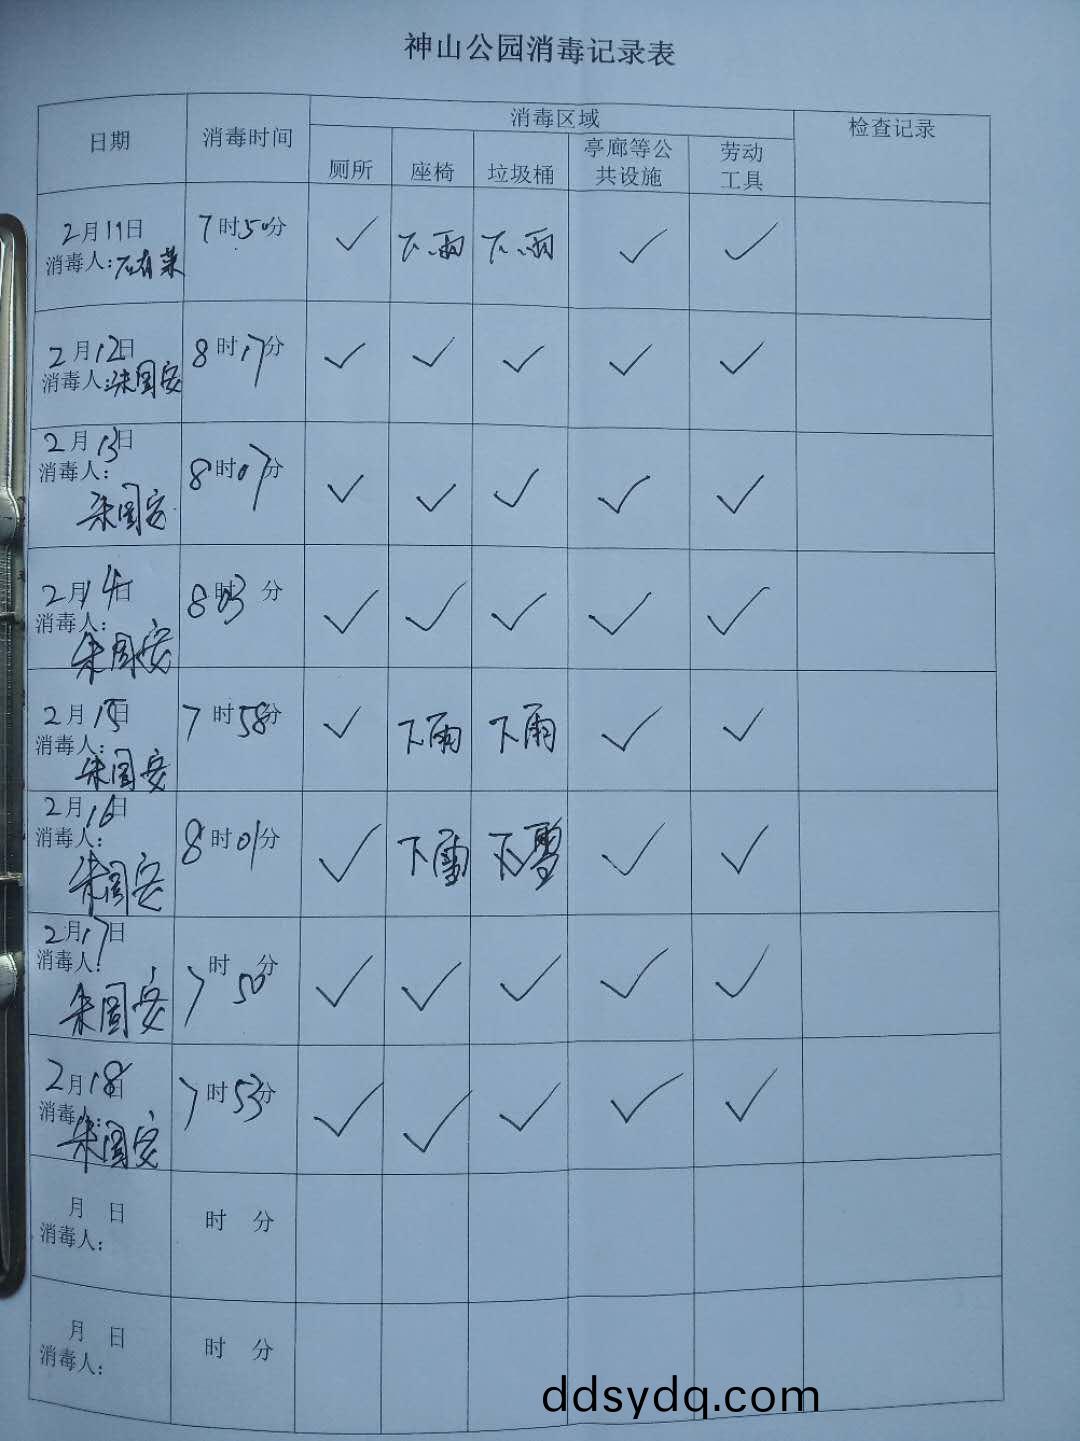 神山公园消毒记录表
日期 消毒时间 消毒区域 检查记录
厕所 座椅 垃圾桶 亭廊等公共设施 劳动工具
2月11日 7时50分 ✓ 下雨 下雨 ✓ ✓
消毒人:
2月12日 8时17分 ✓ ✓ ✓ ✓ ✓
消毒人:朱国安
2月13日 8时07分 ✓ ✓ ✓ ✓ ✓
消毒人:
朱国安
2月14日 8时03分 ✓ ✓ ✓ ✓ ✓
消毒人:
朱国安
2月15日 7时58分 ✓ 下雨 下雨 ✓ ✓
消毒人:
朱国安
2月16日 8时01分 ✓ 下雪 下雪 ✓ ✓
消毒人:
朱国安
2月17日 7时50分 ✓ ✓ ✓ ✓ ✓
消毒人:
朱国安
2月18日 7时53分 ✓ ✓ ✓ ✓ ✓
消毒人:
朱国安
月 日 时 分
消毒人:
月 日 时 分
消毒人:
ddsydq.com